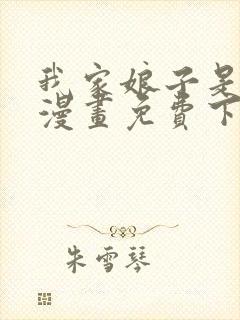 我家娘子是
漫畫免費下
朱雪琴